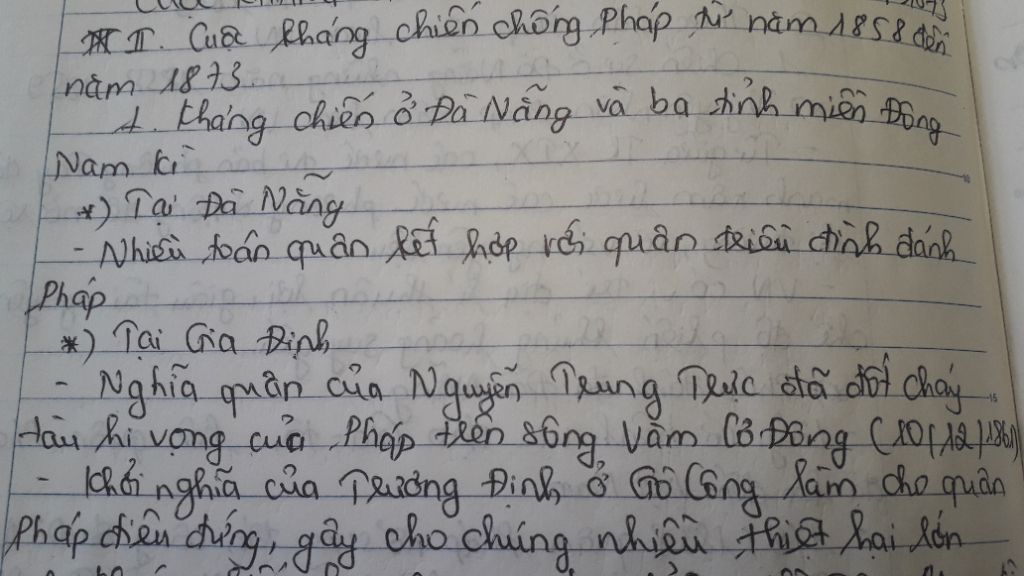 II. Cuộc kháng chiến chống Pháp từ năm 1858 đến
năm 1873.
1. Kháng chiến ở Đà Nẵng và ba tỉnh miền Đông
Nam kì
*) Tại Đà Nẵng
- Nhiều toán quân kết hợp với quân triều đình đánh
Pháp
*) Tại Gia Định
- Nghĩa quân của Nguyễn Trung Trực đã đốt cháy
tàu hi vọng của Pháp trên sông Vàm Cỏ Đông (10/12/1861)
- Khởi nghĩa của Trương Định ở Gò Công làm cho quân
Pháp điêu đứng, gây cho chúng nhiều thiệt hại lớn